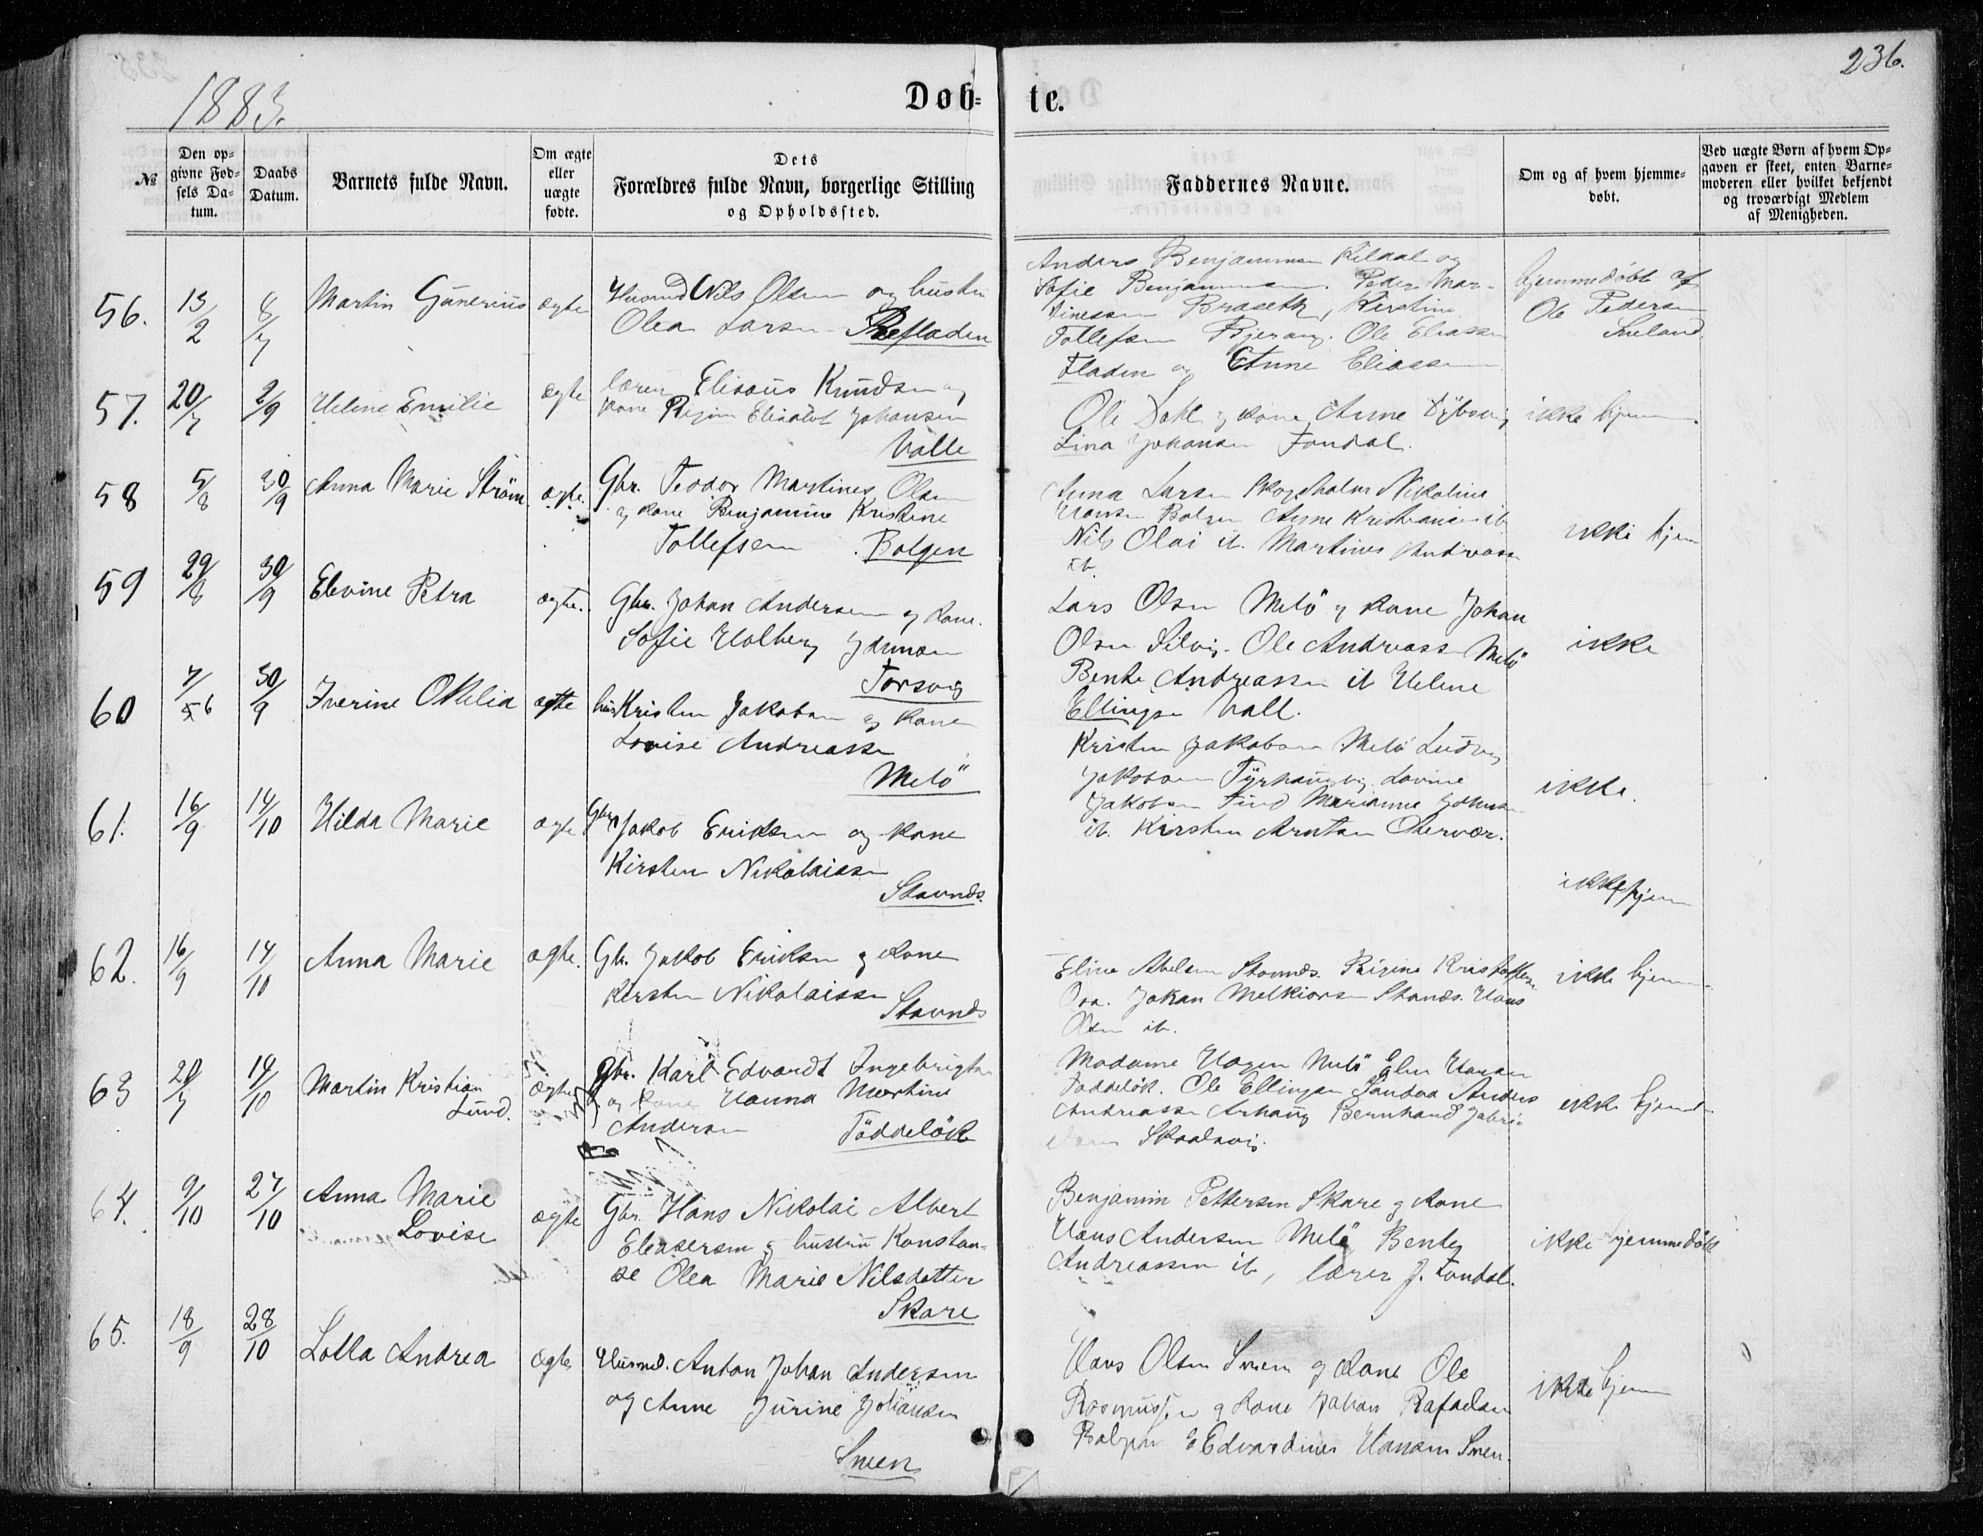 236.
1883.
Døb-
te.
№
Den op-
givne Fød-
sels Da-
tum.
Daabs
Datum.
Barnets fulde Navn.
Om ægte
eller
uægte
fødte.
Dets
Forældres fulde Navn, borgerlige Stilling
og Opholdssted.
Faddernes Navne.
Om og af hvem hjemme-
døbt.
Ved uægte Børn af hvem Op-
gaven er skeet, enten Barne-
moderen eller hvilket bekjendt
og troværdigt Medlem
af Menigheden.
56.
13/2
8/7
Martin Günerius
ægte
Husmd Nils Olsen og hustru
Olea Larsen
Anders Benjaminsen Kildal og
Sofie Benjaminsen. Peder Mar-
tinessen Braseth, Kirstine
Tollefsen Bjerang. Ole Eliassen
Fladen og Anne Eliassen
hjemmedöbt af
Ole Pedersen
57.
20/7
2/9
Helene Emilie
ægte
lærer Elisæus Knudsen og
kone Elisabet Johansen
Valle
Ole Dahl og kone Anne
Lina Johansen Fondal.
ikke hjem
58
5/8
30/9
Anna Marie Ström
ægte.
Gbr. Teodor Martines Olsen
og kone Benjamine Kristine
Tollefsen Bolgen
Anna Larsen Skogsholm Nikoline
Hansen Bolgen Anne Kristiansen ib
Nils Olai ib. Martines Andreassen
ib.
ikke hjem
59
29/8
30/9
Elevine Petra
ægte.
Gbr. Johan Andersen og kone
Sofie Holberg
Torsvig
Lars Olsen Melö og kone Johan
Olsen Silvig. Ole Andreassen Melö
Bente Andreassen ib Helene
Ellingsen Vall.
ikke
60
7/6
30/9
Iverine Otilia
ægte
Kristen Jakobsen og kone
Lovise Andreassen
Melö
Kristen Jakobsen Melö Ludvig
Jakobsen Lovine
Jakobsen Marianne
ib. Kirsten Arntsen Otervær.
ikke.
61.
16/9
14/10
Hilda Marie
ægte
Gbr Jakob Eriksen og kone
Kirsten Nikolaissen
Stavnds.
ikke hjem
62.
16/9
14/10
Anna Marie
ægte.
Gbr. Jakob Eriksen og kone
Kirsten Nikolaissen
Stavnds
Eline Abelsen Stavnds. Kristoffersen
Johan Melkiorsen Stavnds. Hans
Olsen ib.
ikke hjem
63
20/7
14/10
Martin Kristian
Lund.
ægte
Gbr. Karl Edvardt Ingebrigtsen
og kone Hanna Martine
Andersen Töddelök
Madame Hagen Melö Elen Hansen
Töddelök. Ole Ellingsen Sandva Anders
Andreassen Bernhard Gabri-
Skaalsvig.
ikke hjem
64.
9/10
27/10
Anna Marie
Lovise
ægte
Gbr. Hans Nikolai Albert
Eleasersen og hustru Konstan-
se Olea Marie Nilsdatter
Skare
Benjamin Pettersen Skare og kone
Hans Andersen Melö Bente
Andreassen ib, lærer J. Fondal.
ikke hjemmedöbt
65.
18/9
28/10
Lolla Andrea
ægte
Husmd. Anton Johan Andersen
og Anne Jurine Johansen
Sneen
Hans Olsen Sneen og kone Ole
Rasmussen og kone Johan Rafaelsen
Bolgen Edvardines Hansen Sneen.
ikke hjem